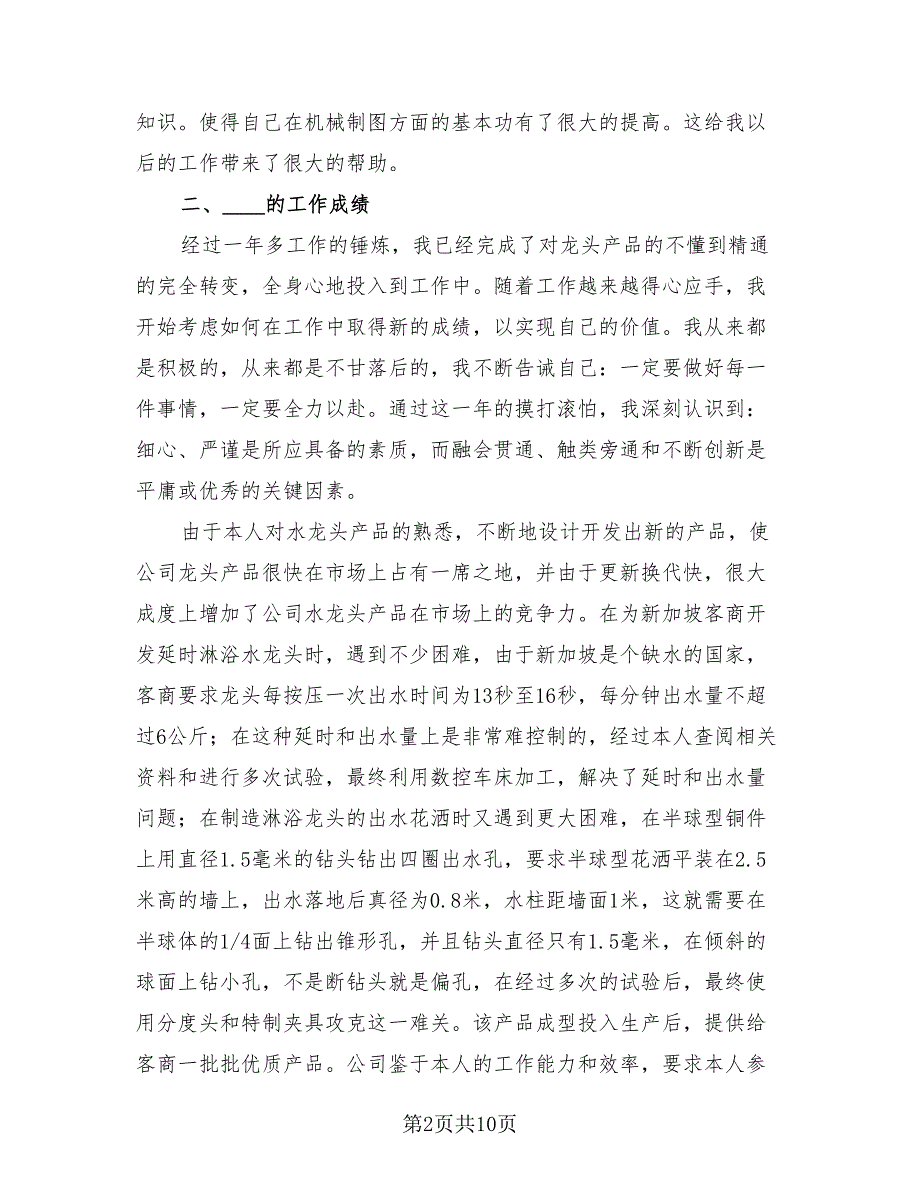 知识。使得自己在机械制图方面的基本功有了很大的提高。这给我以
后的工作带来了很大的帮助。
二、____的工作成绩
经过一年多工作的锤炼，我已经完成了对龙头产品的不懂到精通
的完全转变，全身心地投入到工作中。随着工作越来越得心应手，我
开始考虑如何在工作中取得新的成绩，以实现自己的价值。我从来都
是积极的，从来都是不甘落后的，我不断告诫自己：一定要做好每一
件事情，一定要全力以赴。通过这一年的摸打滚怕，我深刻认识到：
细心、严谨是所应具备的素质，而融会贯通、触类旁通和不断创新是
平庸或优秀的关键因素。
由于本人对水龙头产品的熟悉，不断地设计开发出新的产品，使
公司龙头产品很快在市场上占有一席之地，并由于更新换代快，很大
成度上增加了公司水龙头产品在市场上的竞争力。在为新加坡客商开
发延时淋浴水龙头时，遇到不少困难，由于新加坡是个缺水的国家，
客商要求龙头每按压一次出水时间为13秒至16秒，每分钟出水量不超
过6公斤；在这种延时和出水量上是非常难控制的，经过本人查阅相关
资料和进行多次试验，最终利用数控车床加工，解决了延时和出水量
问题；在制造淋浴龙头的出水花洒时又遇到更大困难，在半球型铜件
上用直径1.5毫米的钻头钻出四圈出水孔，要求半球型花洒平装在2.5
米高的墙上，出水落地后真径为0.8米，水柱距墙面1米，这就需要在
半球体的1/4面上钻出锥形孔，并且钻头直径只有1.5毫米，在倾斜的
球面上钻小孔，不是断钻头就是偏孔，在经过多次的试验后，最终使
用分度头和特制夹具攻克这一难关。该产品成型投入生产后，提供给
客商一批批优质产品。公司鉴于本人的工作能力和效率，要求本人参
第2页共10页